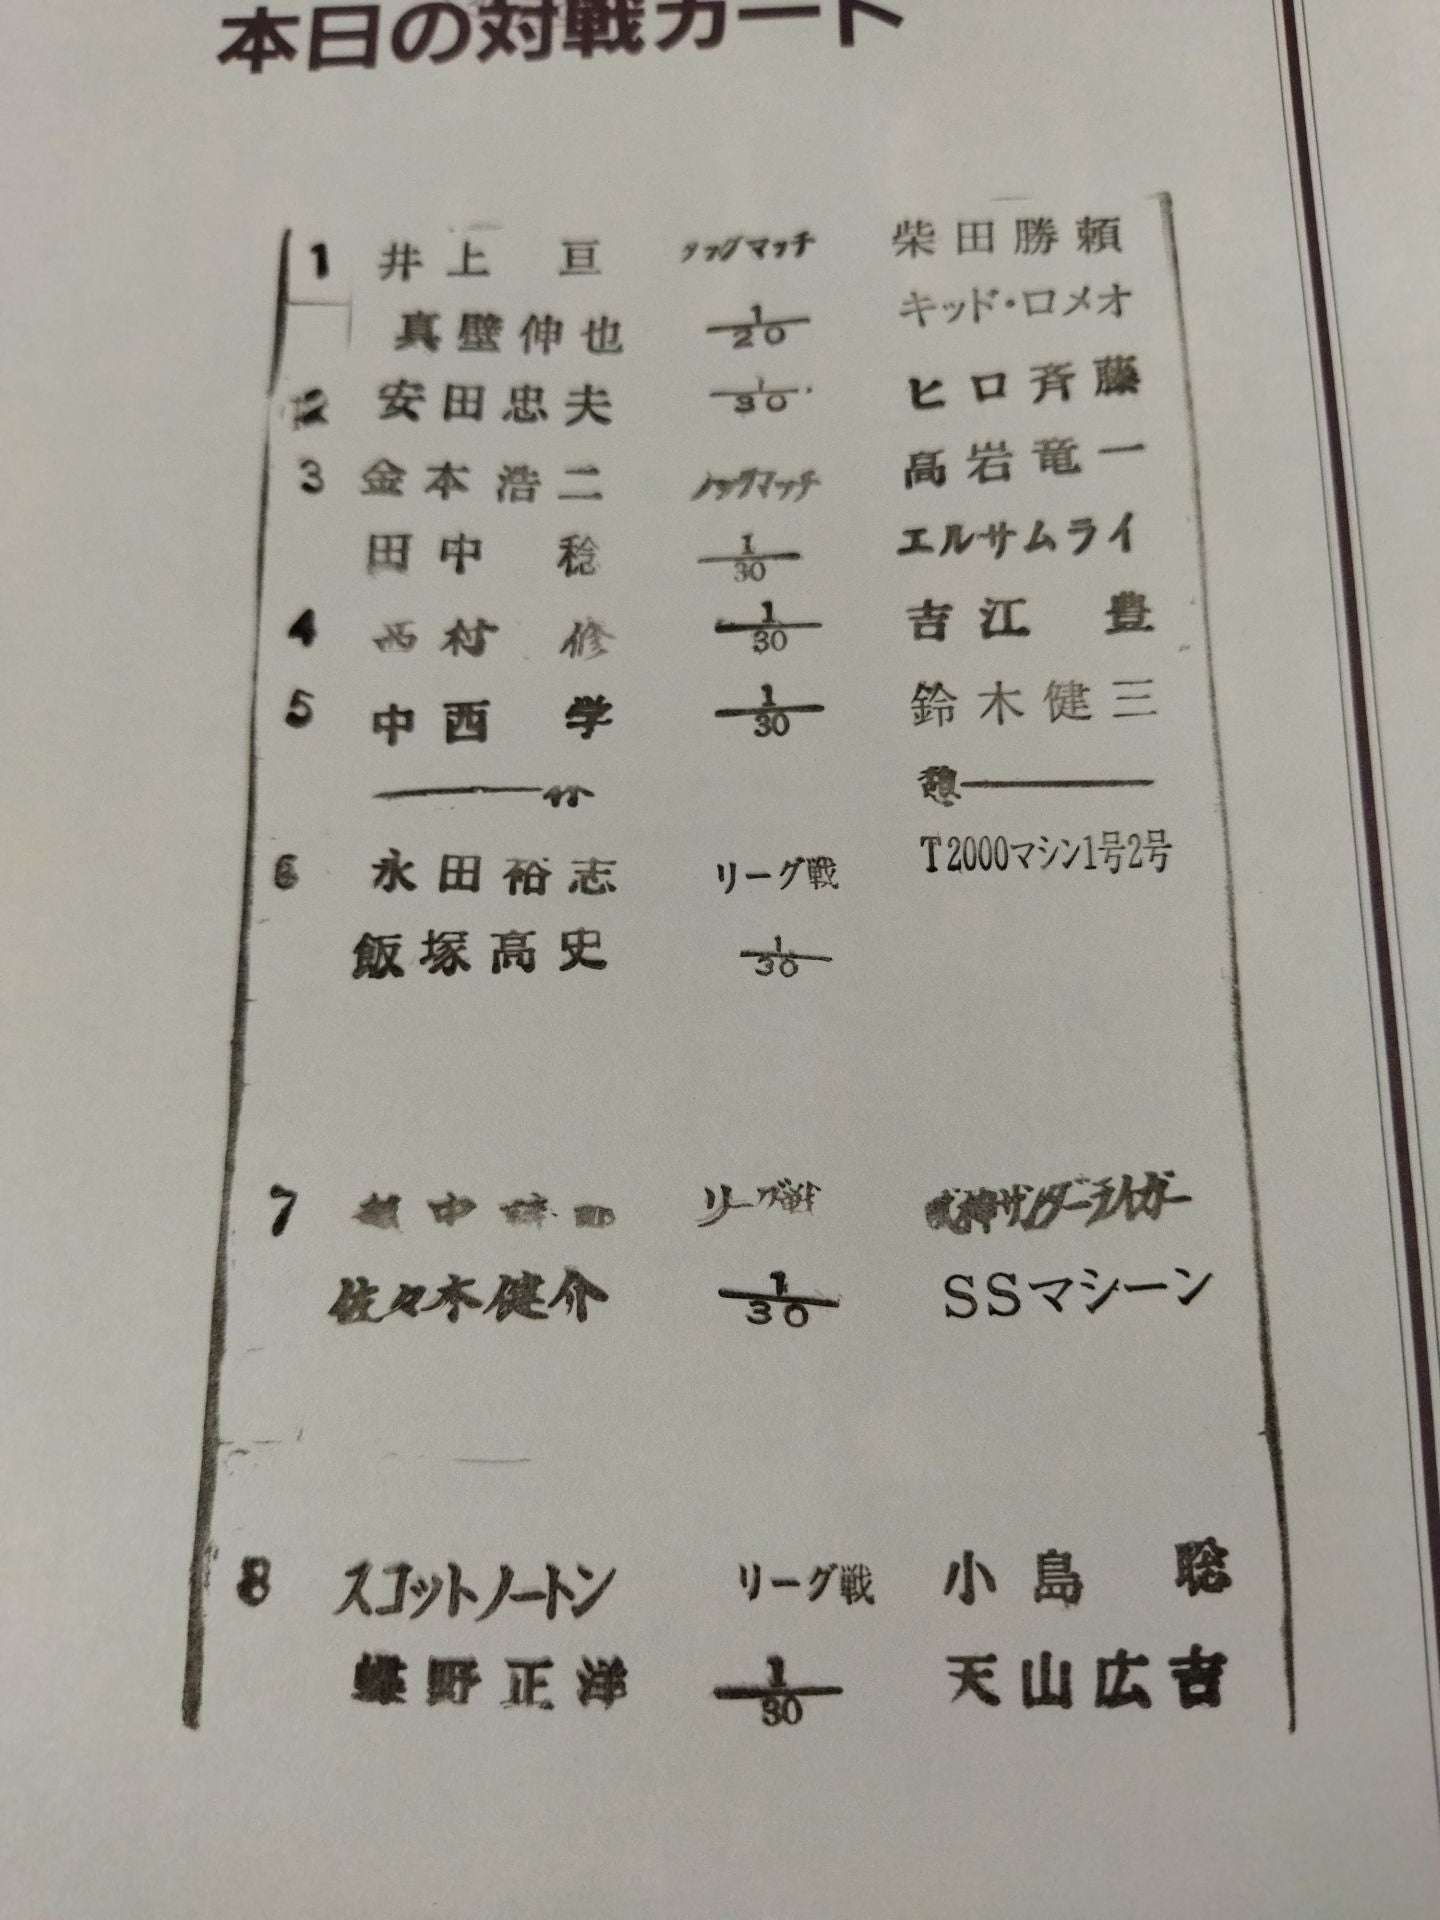 本日の対戦カード
1 井上 亘 タッグマッチ 柴田勝頼
真壁伸也 1/20 キッド・ロメオ
2 安田忠夫 1/30 ヒロ斉藤
3 金本浩二 タッグマッチ 高岩竜一
田中 稔 1/30 エルサムライ
4 西村 修 1/30 吉江 豊
5 中西 学 1/30 鈴木健三
休 憩
6 永田裕志 リーグ戦 T2000マシン1号2号
飯塚高史 1/30
7 越中詩郎 リーグ戦 サンダーライガー
佐々木健介 1/30 SSマシーン
8 スコットノートン リーグ戦 小島 聡
蝶野正洋 1/30 天山広吉